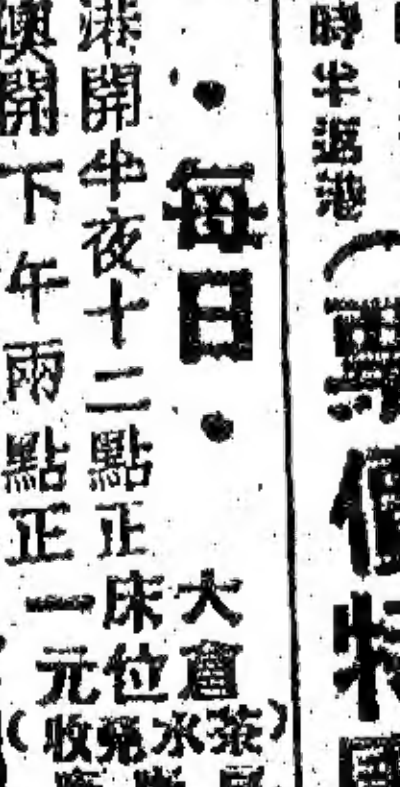 時半返港
價特
・每日・
港開半夜十二點正
澳開下午兩點正
大窗
床位
一元
（茶水免收）